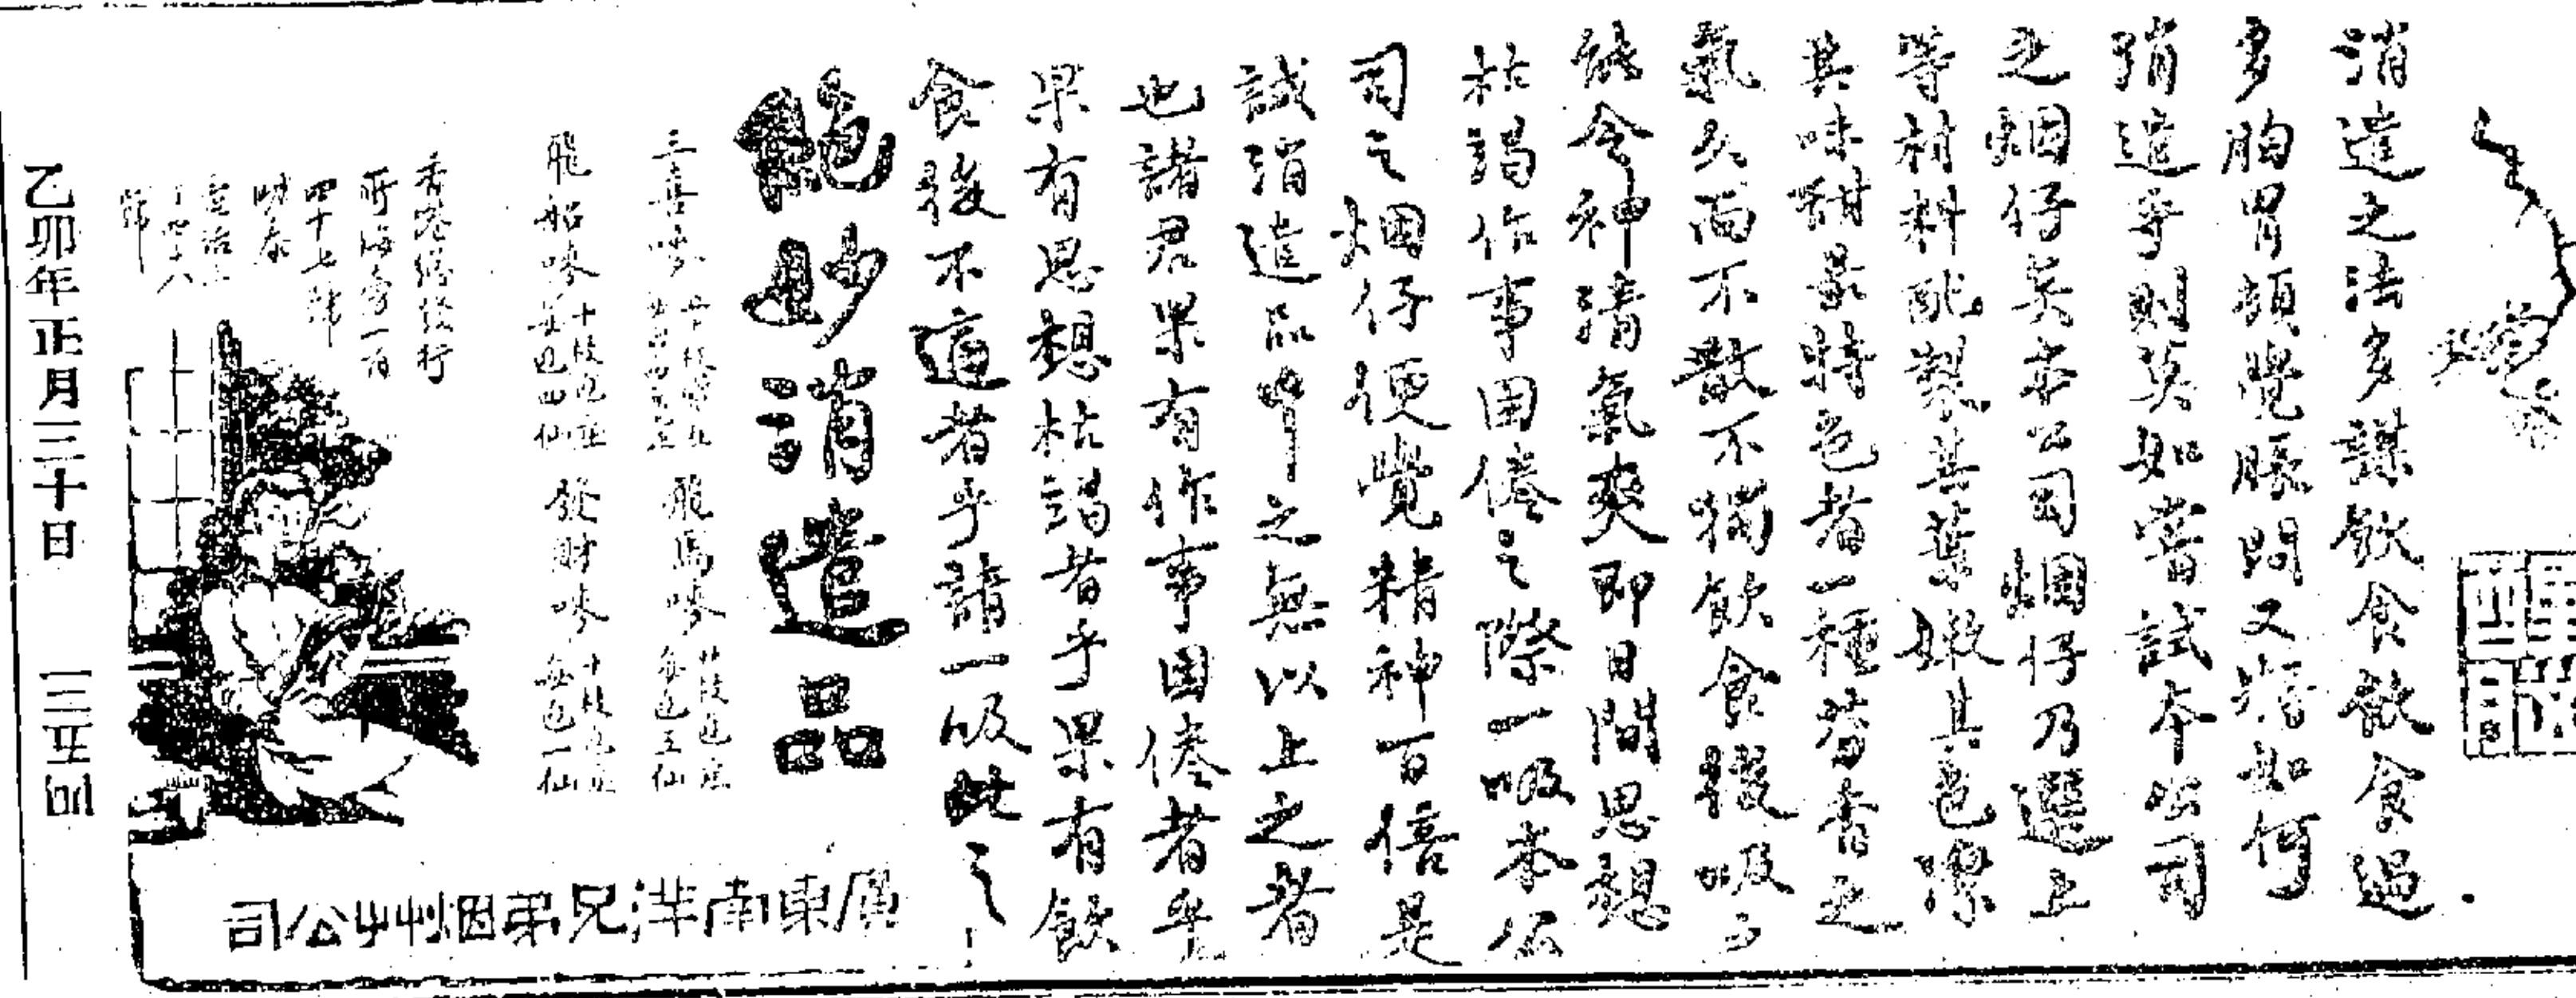 消遣之法多謀飲食飲食過
多胸胃頓覺脹悶又將如何
消遣乎則莫如嘗試本公司
之烟仔矣本公司烟仔乃選上
等材料配製其葉嫩其色潔
其味甜最特色者一種芬香之
氣久而不散不獨飲食後吸之
能令神清氣爽即日間思想
枯竭作事困倦之際一吸本公
司之烟仔便覺精神百倍是
誠消遣品中之無以上之者
也諸君果有作事困倦者乎
果有思想枯竭者乎果有飲
食後不適者乎請一吸此
絕妙消遣品
三喜嘜
飛馬嘜 廿枝包庄 每包五仙
飛船嘜 十枝包庄 每包四仙
發財嘜 十枝包庄 每包一仙
香港總發行
所海旁一百
四十七號
廣東南洋兄弟烟草公司
乙卯年正月三十日